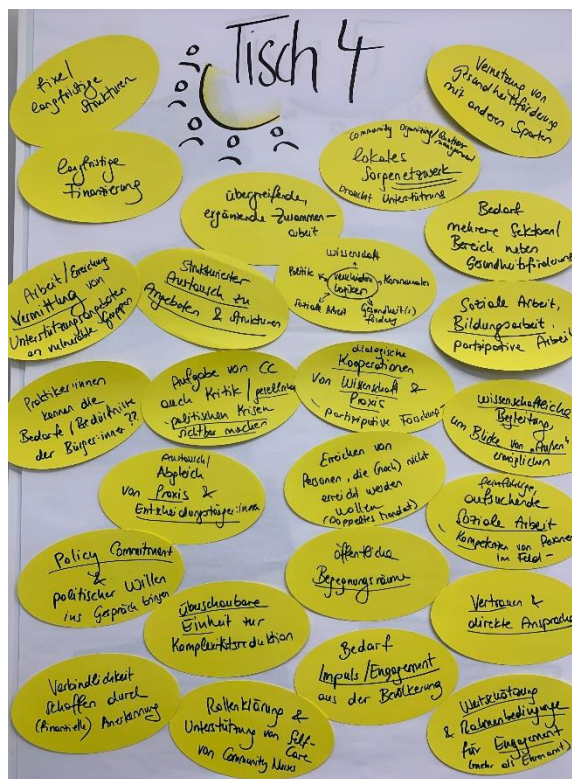 Tisch 4
fixe/
langfristige
Strukturen
Vernetzung von
Gesundheitsförderung
mit anderen Sparten
langfristige
Finanzierung
Community Organizing/
lokales
Sorgenetzwerk
braucht Unterstützung
übergreifende,
ergänzende Zusammen-
arbeit
Bedarf
mehrere Sektoren/
Bereich neben
Gesundheitsförderung
Arbeit/Erreichung
Vermittlung von
Unterstützungsangeboten
an vulnerable Gruppen
Strukturierter
Austausch zu
Angeboten & Strukturen
Wissenschaft
Politik
verschiedene
Logiken
Kommunales
Soziale Arbeit
Gesundheit(s)
förderung
Soziale Arbeit,
Bildungsarbeit,
partizipative Arbeit
Praktiker:innen
kennen die
Bedarfe/Bedürfnisse
der Bürger:innen ??
Aufgabe von CC
auch Kritik/
politischen Krisen
sichtbar machen
dialogische
Kooperationen
von Wissenschaft &
Praxis
- partizipative Forschung -
wissenschaftliche
Begleitung,
um Blicke von "Außen"
ermöglichen
Austausch/
Abgleich
von Praxis &
Entscheidungsträger:innen
Erreichen von
Personen, die (noch) nicht
erreicht werden
wollen
(Doppeltes Mandat)
aufsuchende
Soziale Arbeit
- Kompetenzen von Personen
im Feld -
Policy Commitment
&
politischer Willen
ins Gespräch bringen
öffentliche
Begegnungsräume
überschaubare
Einheit zur
Komplexitätsreduktion
Vertrauen &
direkte Ansprache
Bedarf
Impuls/Engagement
aus der Bevölkerung
Verbindlichkeit
schaffen durch
(finanzielle) Anerkennung
Rollenklärung &
Unterstützung von Self-
Care
von Community Nurses
Wertschätzung
& Rahmenbedingungen
für Engagement
(mehr als Ehrenamt)